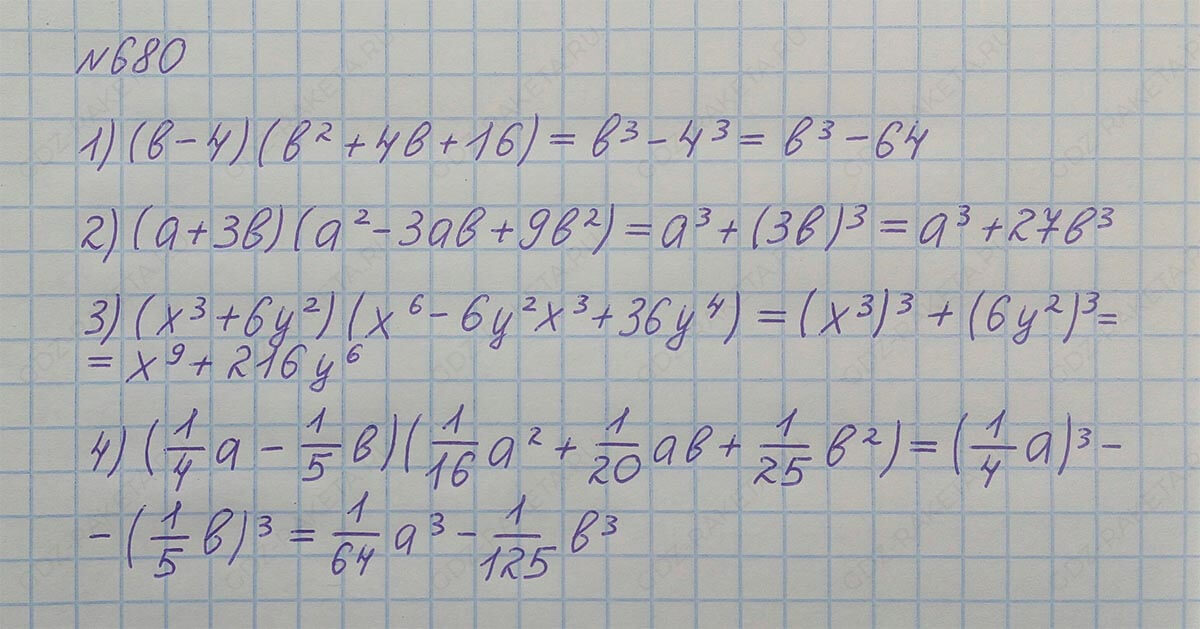 №680
1) (в-4)(в²+4в+16)=в³-4³=в³-64
2) (а+3в)(а²-3ав+9в²)=а³+(3в)³=а³+27в³
3) (x³+6y²)(x⁶-6y²x³+36y⁴)=(x³)³+(6y²)³=
=x⁹+216y⁶
4) (1/4 а - 1/5 в)(1/16 а² + 1/20 ав + 1/25 в²)=(1/4 а)³-
-(1/5 в)³ = 1/64 а³ - 1/125 в³